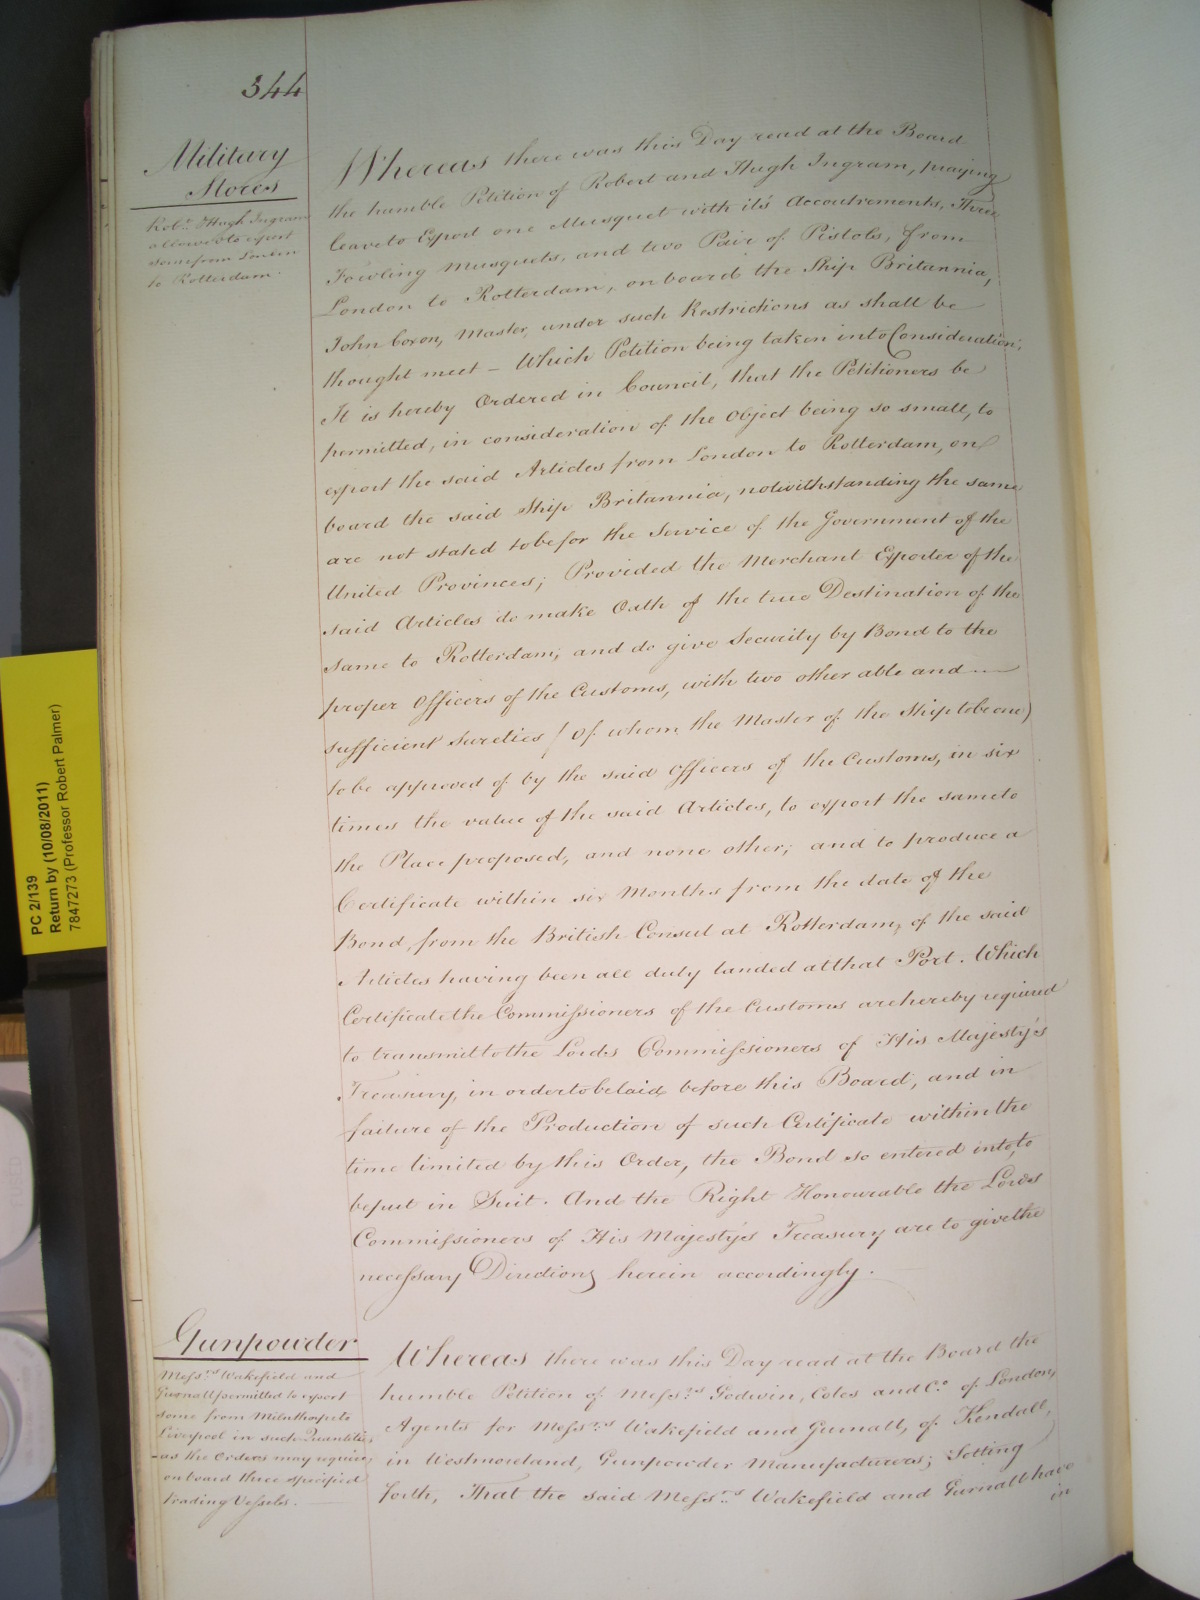 344
Military
Stores
Rob.t & Hugh Ingram
allowed to export
some from London
to Rotterdam.
Whereas there was this Day read at the Board
the humble Petition of Robert and Hugh Ingram, praying
leave to Export one Musquet with it's Accoutrements, Three
Fowling Musquets, and two Pair of Pistols, from
London to Rotterdam, on board the Ship Britannia,
John Coxon, Master, under such Restrictions as shall be
thought meet — Which Petition being taken into Consideration,
It is hereby Ordered in Council, that the Petitioners be
permitted, in consideration of the Object being so small, to
export the said Articles from London to Rotterdam, on
board the said Ship Britannia, notwithstanding the same
are not stated to be for the Service of the Government of the
United Provinces; Provided the Merchant Exporter of the
said Articles do make Oath of the true Destination of the
same to Rotterdam; and do give Security by Bond to the
proper Officers of the Customs, with two other able and
sufficient Sureties (of whom the Master of the Ship to be one)
to be approved of by the said Officers of the Customs, in six
times the value of the said Articles, to export the same to
the Place proposed, and none other; and to produce a
Certificate within six Months from the date of the
Bond, from the British Consul at Rotterdam, of the said
Articles having been all duly landed at that Port. Which
Certificate the Commissioners of the Customs are hereby required
to transmit to the Lords Commissioners of His Majesty's
Treasury, in order to be laid before this Board, and in
failure of the Production of such Certificate within the
time limited by this Order, the Bond so entered into, to
be put in Suit. And the Right Honourable the Lords
Commissioners of His Majesty's Treasury are to give the
necessary Directions herein accordingly.
Gunpowder
Mess.rs Wakefield and
Gurnall permitted to export
some from Milnthorp to
Liverpool in such Quantities
as the Orders may require,
on board three specified
trading Vessels.
Whereas there was this Day read at the Board the
humble Petition of Mess.rs Godwin, Coles and C.o of London,
Agents for Mess.rs Wakefield and Gurnall, of Kendall,
in Westmoreland, Gunpowder Manufacturers; Setting
forth, That the said Mess.rs Wakefield and Gurnall have
in
PC 2/139
Return by (10/08/2011)
7847273 (Professor Robert Palmer)